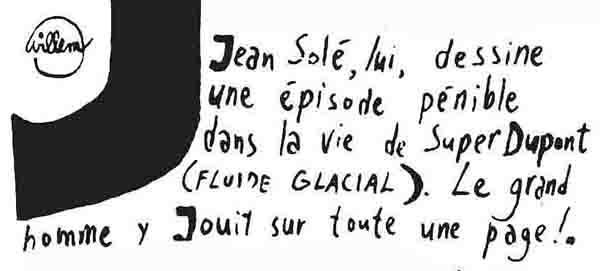 Willem
Jean Solé, lui, dessine
une épisode pénible
dans la vie de SuperDupont
(FLUIDE GLACIAL). Le grand
homme y Jouit sur toute une page!.